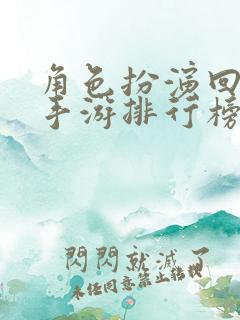 角色扮演回
手游排行榜
閃閃就滅了
未经同意禁止转载